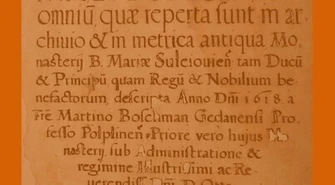 omniũ, quæ reperta sunt in ar
chivio & in metrica antiqua Mo
nasterij B. Mariæ Suleiouien tam Ducũ
& Principũ quam Regũ & Nobilium be
nefactorum, descripta Anno Dñi 1618. a
Fr̃e Martino Boschman Gedanensi Pro
fesso Polplinen. Priore vero hujus Mo
nasterij, sub Administratione &
regimine Illustrissimi ac Re
verendiss. Dñi D.